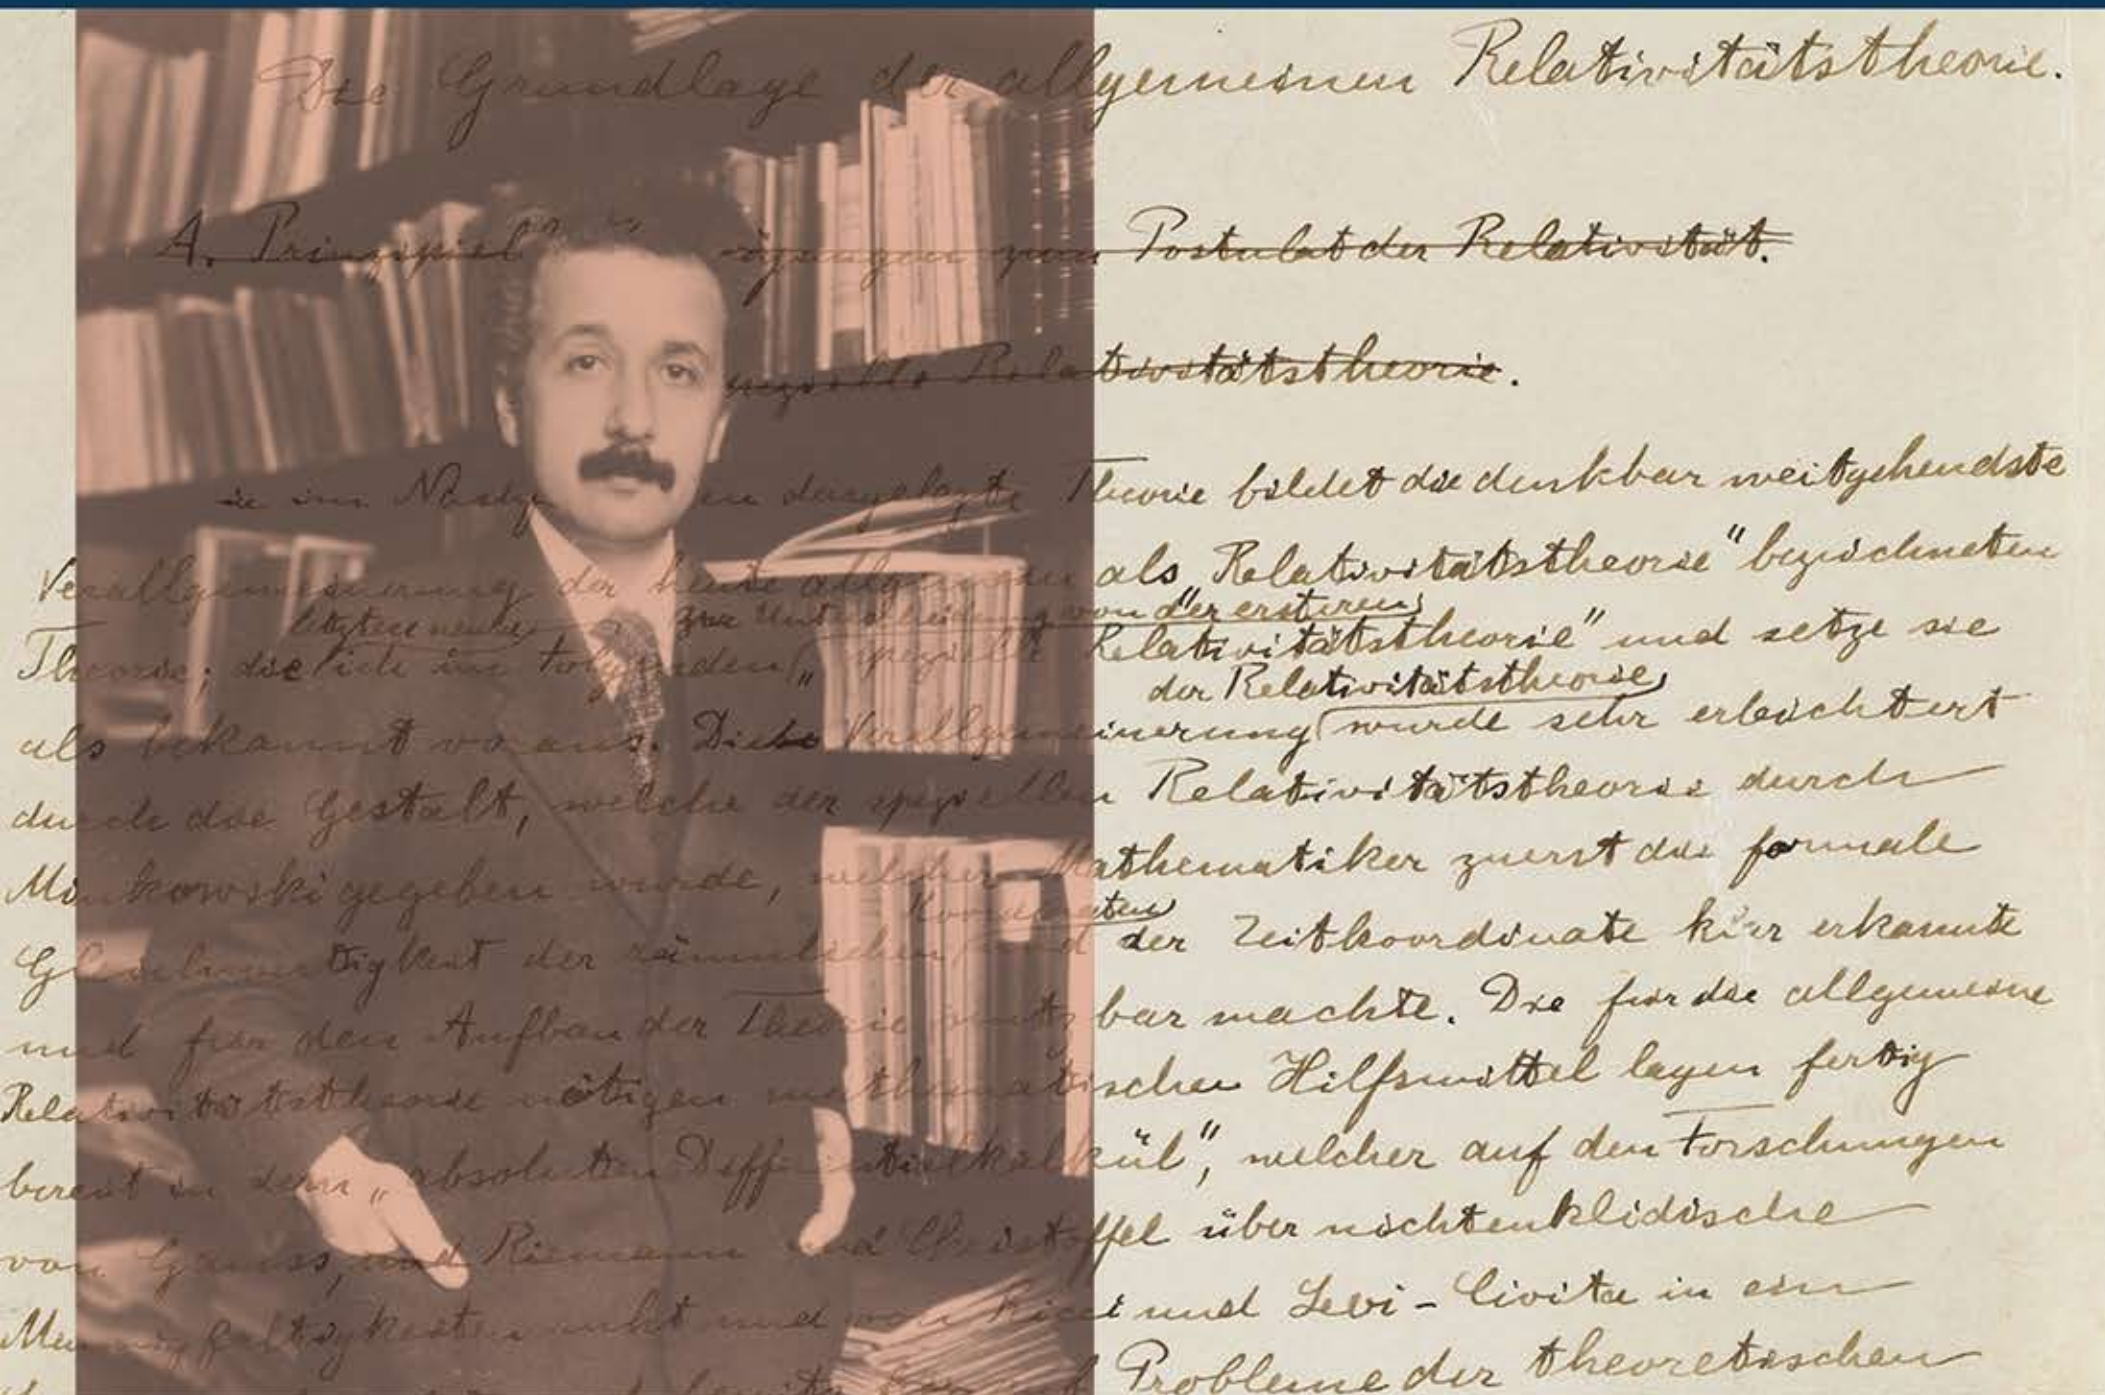 Die Grundlage der allgemeinen Relativitätstheorie.
A. Prinzipiel ägungen zum Postulat der Relativität.
spezielle Relativitätstheorie.
ie im Nachfo en dargelegte Theorie bildet die denkbar weitgehendste
Verallgemeinerung der heute allgemein als „Relativitätstheorie" bezeichneten
letztere nenne zur Unterscheidung von der ersteren
Theorie; die ich im Folgenden „spezielle Relativitätstheorie" und setze sie
der Relativitätstheorie
als bekannt voraus. Diese Verallgemeinerung wurde sehr erleichtert
durch die Gestalt, welche der speziellen Relativitätstheorie durch
Minkowski gegeben wurde, welcher Mathematiker zuerst die formale
Koordinaten
Gleichwertigkeit der räumlichen und der Zeitkoordinate klar erkannte
und für den Aufbau der Theorie nutzbar machte. Die für die allgemeine
Relativitätstheorie nötigen mathematischen Hilfsmittel lagen fertig
bereit in dem „absoluten Differentialkalkül", welcher auf den Forschungen
von Gauss, und Riemann und Christoffel über nichteuklidische
Mannigfaltigkeiten ruht und von Ricci und Levi-Civita in ein
Probleme der theoretischen